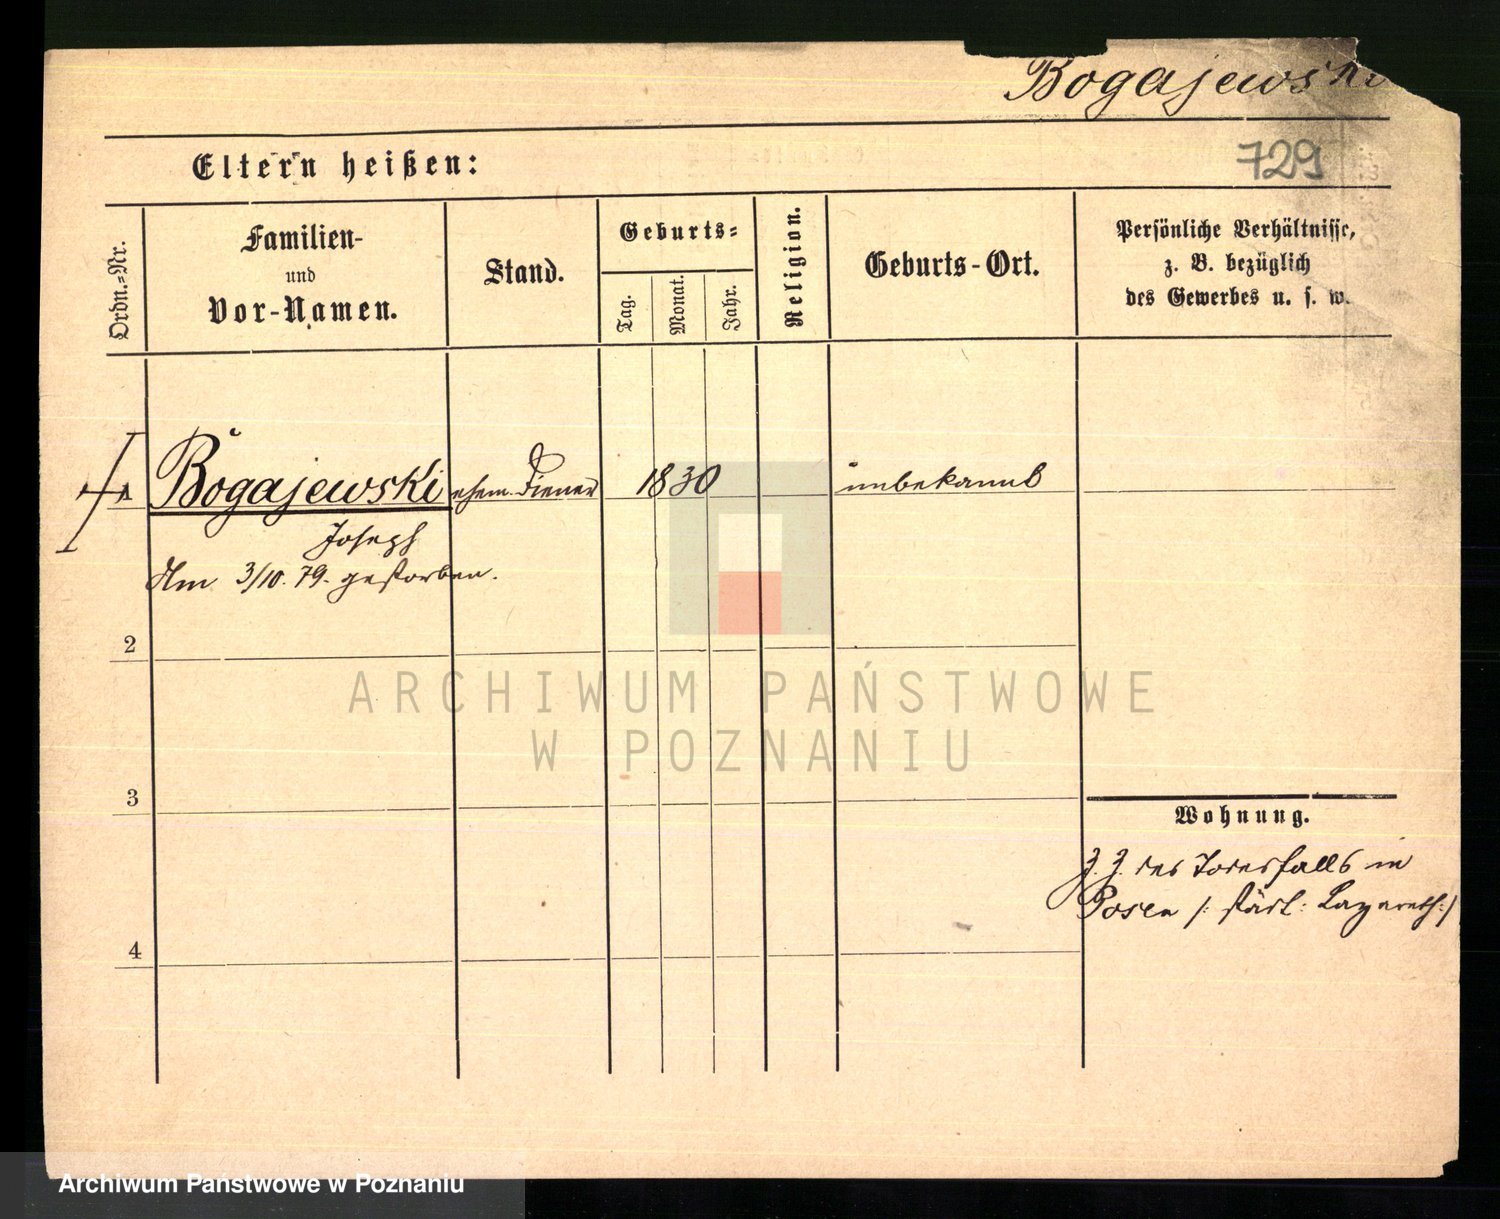 Bogajewski
729
Eltern heißen:
Ordn.-Nr.
Familien-
und
Vor-Namen.
Stand.
Geburts-
Tag.
Monat.
Jahr.
Religion.
Geburts-Ort.
Persönliche Verhältnisse,
z. B. bezüglich
des Gewerbes u. s. w.
Bogajewski
ehem. Diener
1830
unbekannt
Joseph
Am 3/10. 79. gestorben.
2
3
4
Wohnung.
z. Z. des Todesfalls in
Posen /: städt: Lazareth :/
ARCHIWUM PAŃSTWOWE
W POZNANIU
Archiwum Państwowe w Poznaniu